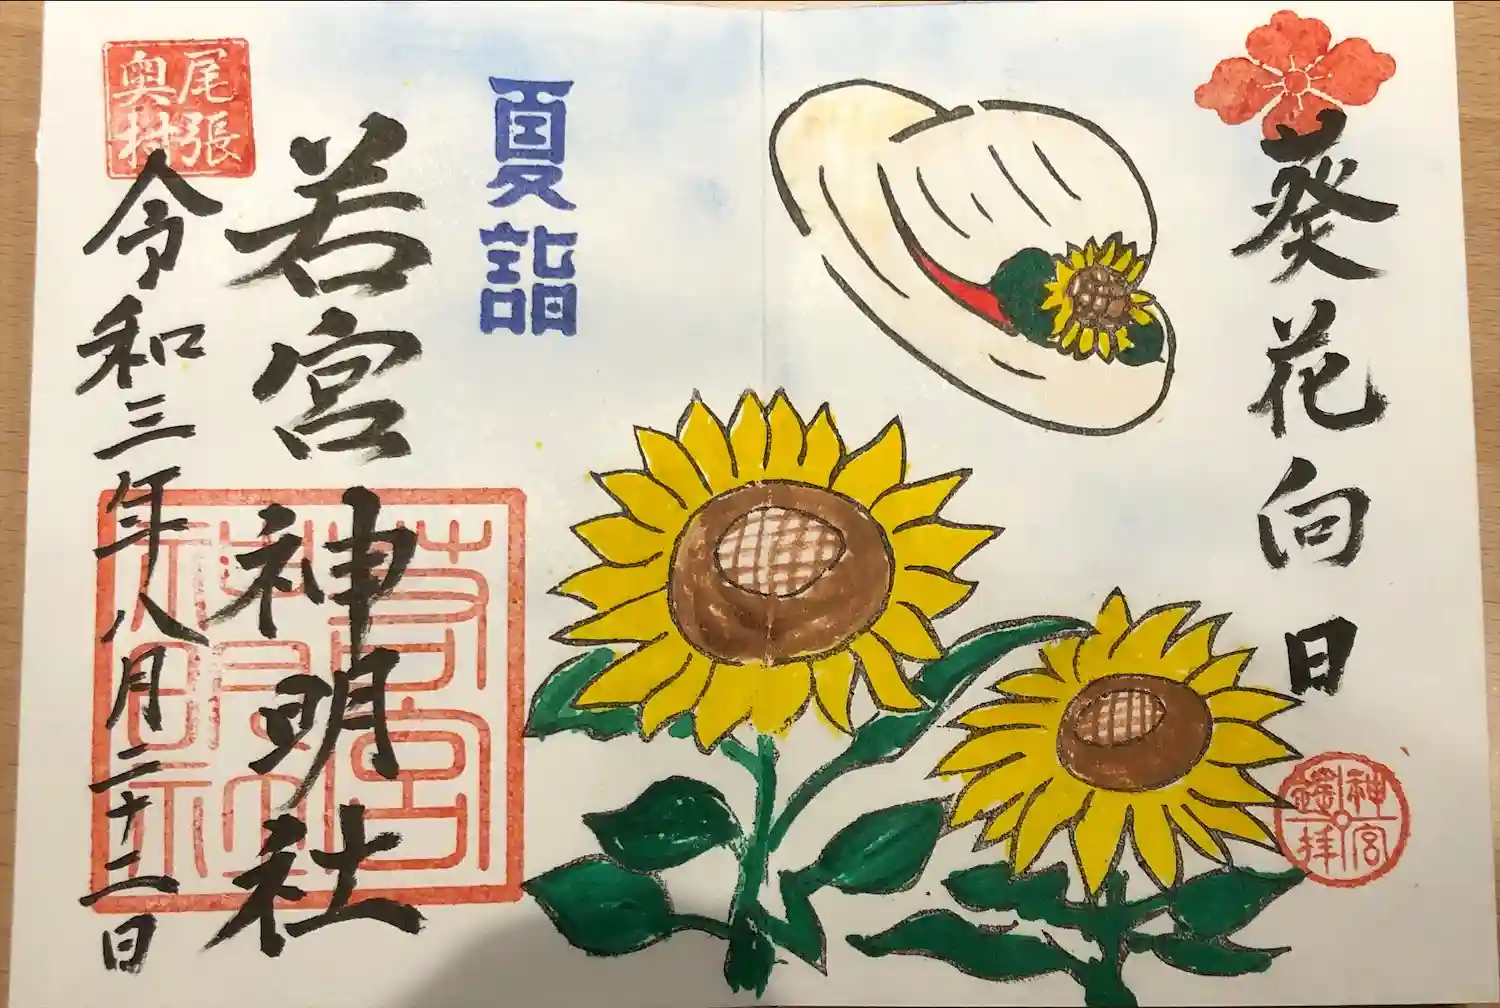 葵花向日
神宮
遙拝
夏詣
若宮神明社
尾張
奥村
令和三年八月二十二日